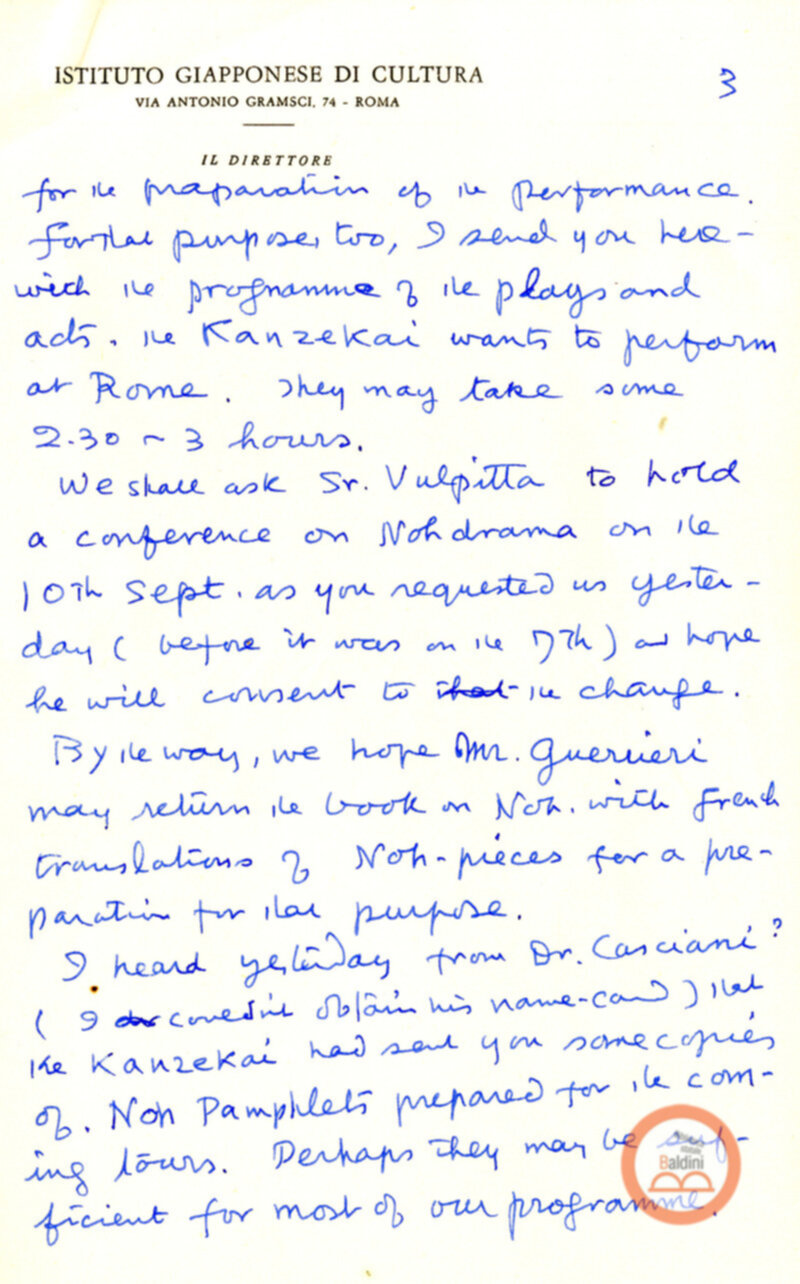 ISTITUTO GIAPPONESE DI CULTURA
VIA ANTONIO GRAMSCI, 74 - ROMA
3
IL DIRETTORE
for the preparation of the performance.
For that purpose, too, I send you here-
with the programme of the plays and
acts. the Kanzekai wants to perform
at Rome. They may take some
2.30 ~ 3 hours.
We shall ask Sr. Vulpitta to hold
a conference on Noh drama on the
10th Sept. as you requested us yester-
day ( before it was on the 7th ) and hope
he will consent to that the change.
By the way, we hope Mr. Guerrieri
may return the book on Noh. with french
translations of Noh-pièces for a pre-
paration for that purpose.
I heard yesterday from Dr. Casciani?
( I couldn't obtain his name-card ) that
the Kanzekai had sent you some copies
of. Noh Pamphlets prepared for the com-
ing tours. Perhaps they may be suf-
ficient for most of our programme.
Baldini